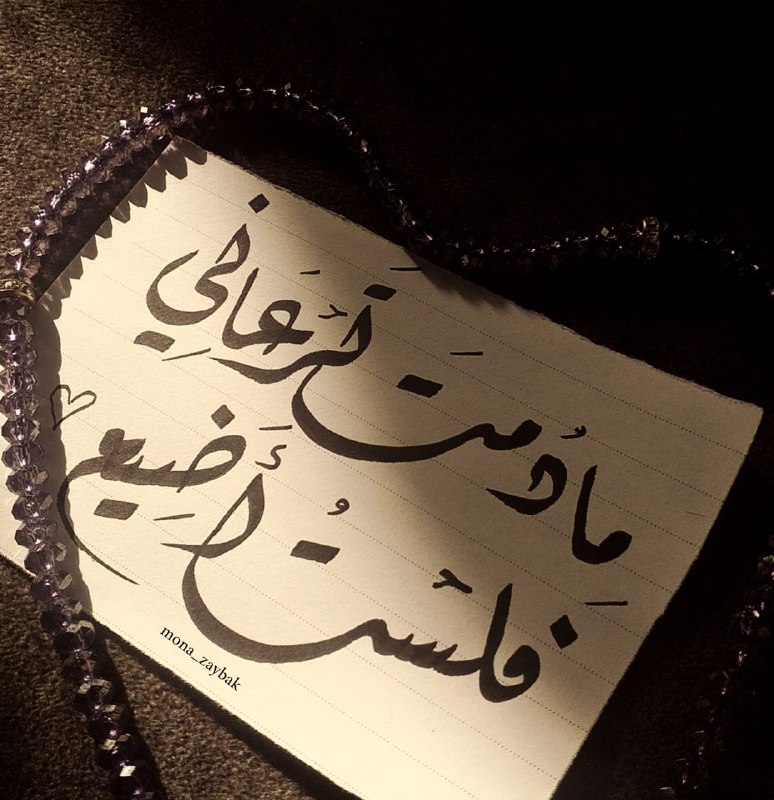 مادُمتَ تَرْعاني
فلسْتُ أَضيع
mona_zaybak